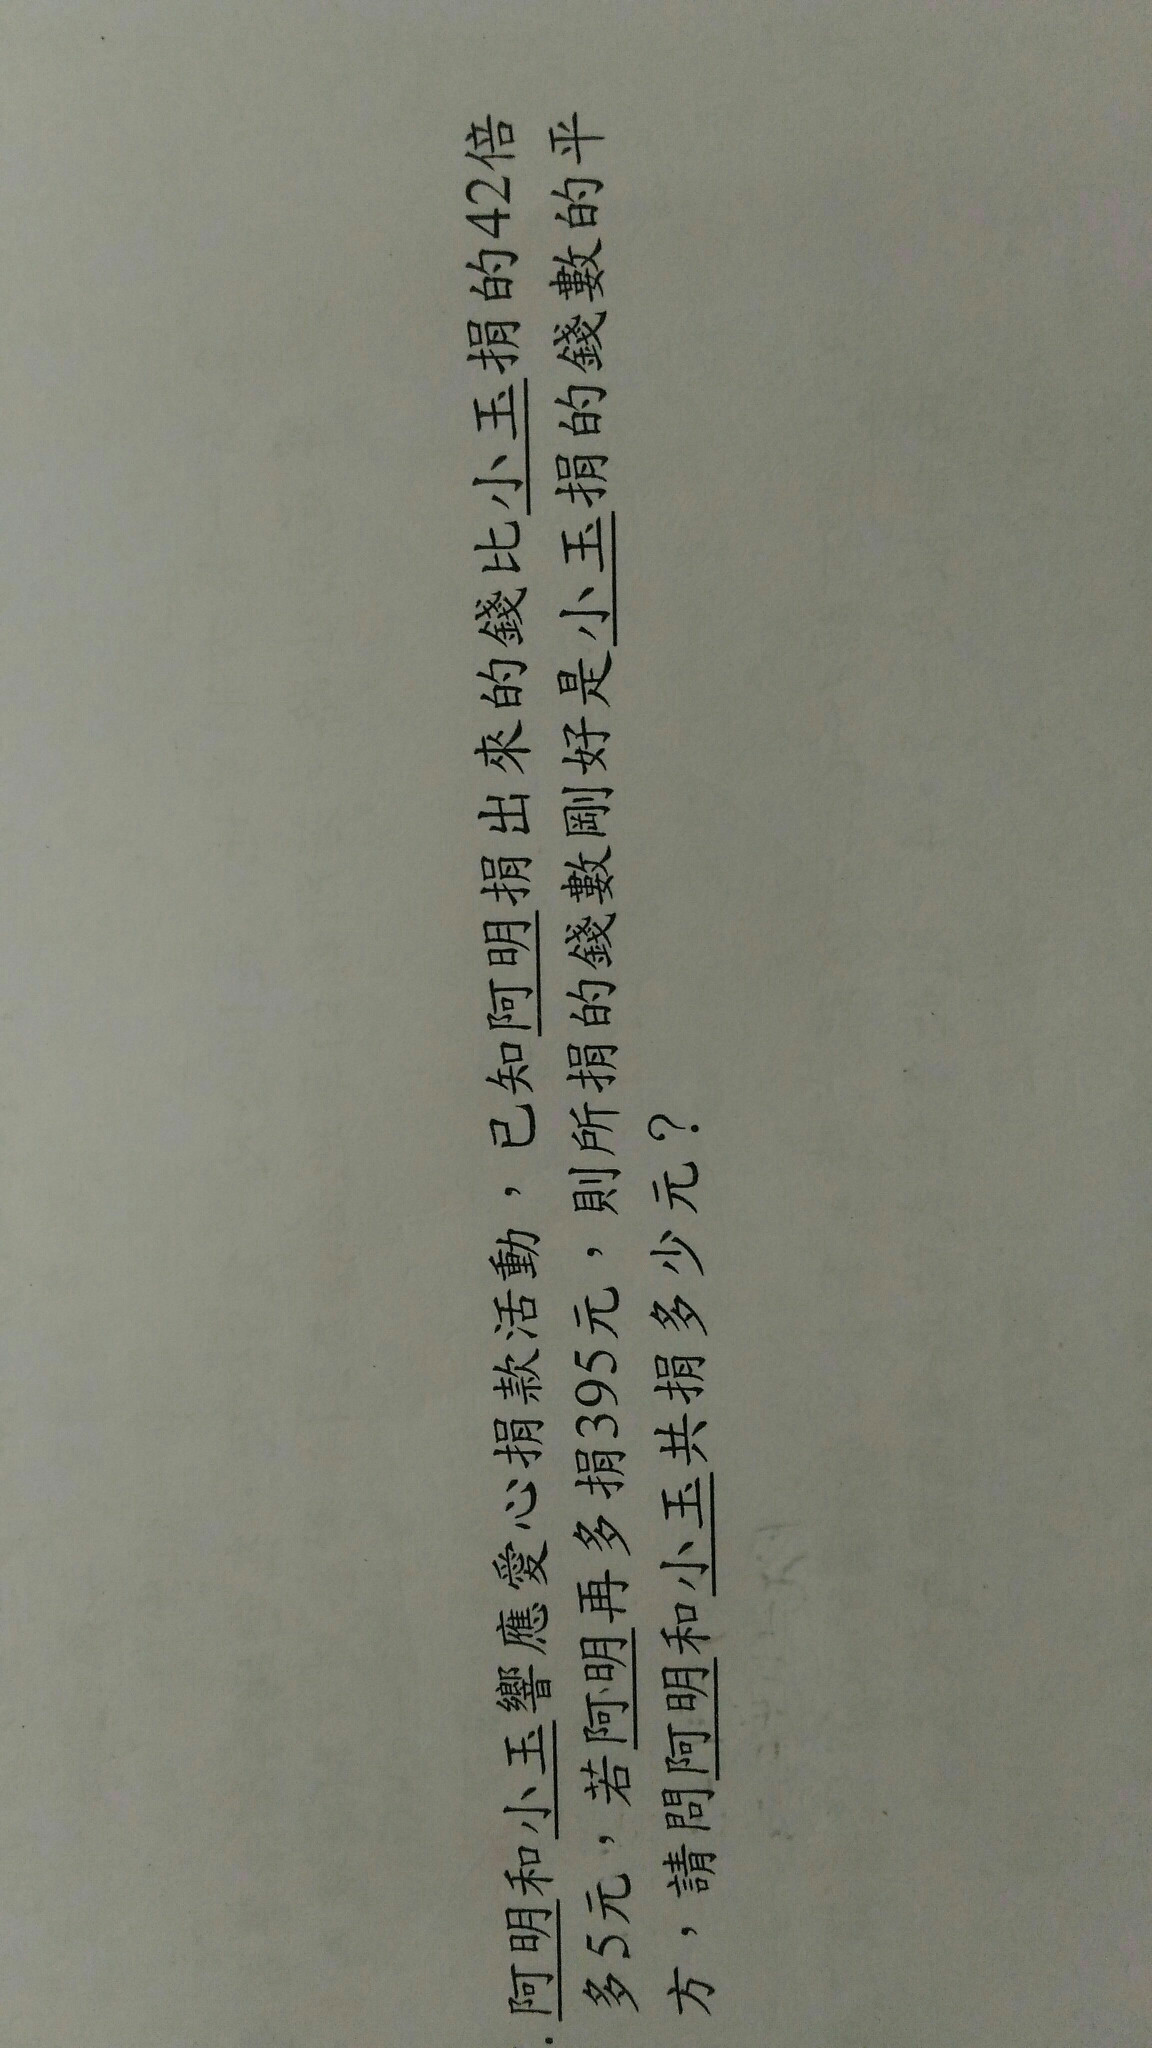 . 阿明和小玉響應愛心捐款活動，已知阿明捐出來的錢比小玉捐的42倍
多5元，若阿明再多捐395元，則所捐的錢數剛好是小玉捐的錢數的平
方，請問阿明和小玉共捐多少元？